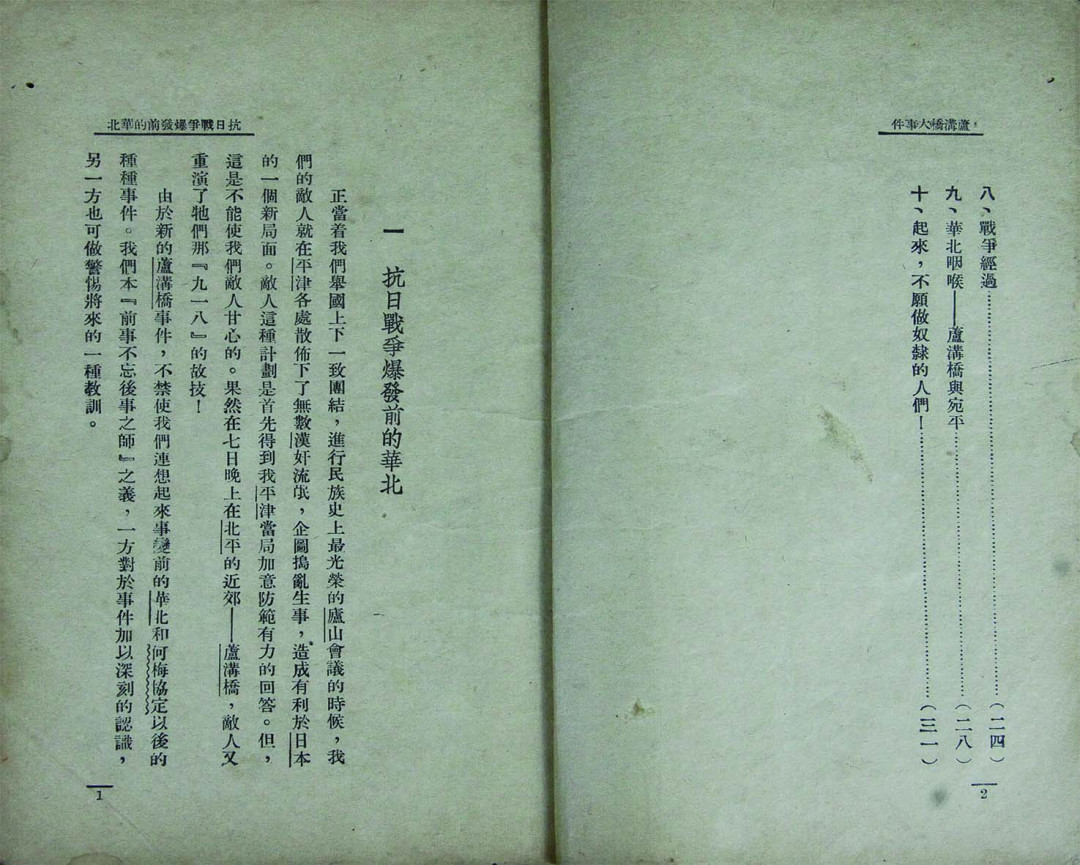 蘆溝橋大事件
八、戰爭經過……………………（二四）
九、華北咽喉——蘆溝橋與宛平……………………（二八）
十、起來，不願做奴隸的人們！……………………（三一）
2
抗日戰爭爆發前的華北
一　抗日戰爭爆發前的華北
正當着我們舉國上下一致團結，進行民族史上最光榮的廬山會議的時候，我
們的敵人就在平津各處散佈下了無數漢奸流氓，企圖搗亂生事，造成有利於日本
的一個新局面。敵人這種計劃是首先得到我平津當局加意防範有力的回答。但，
這是不能使我們敵人甘心的。果然在七日晚上在北平的近郊——蘆溝橋，敵人又
重演了牠們那『九一八』的故技！
由於新的蘆溝橋事件，不禁使我們連想起來事變前的華北和何梅協定以後的
種種事件。我們本『前事不忘後事之師』之義，一方對於事件加以深刻的認識，
另一方也可做警惕將來的一種教訓。
1